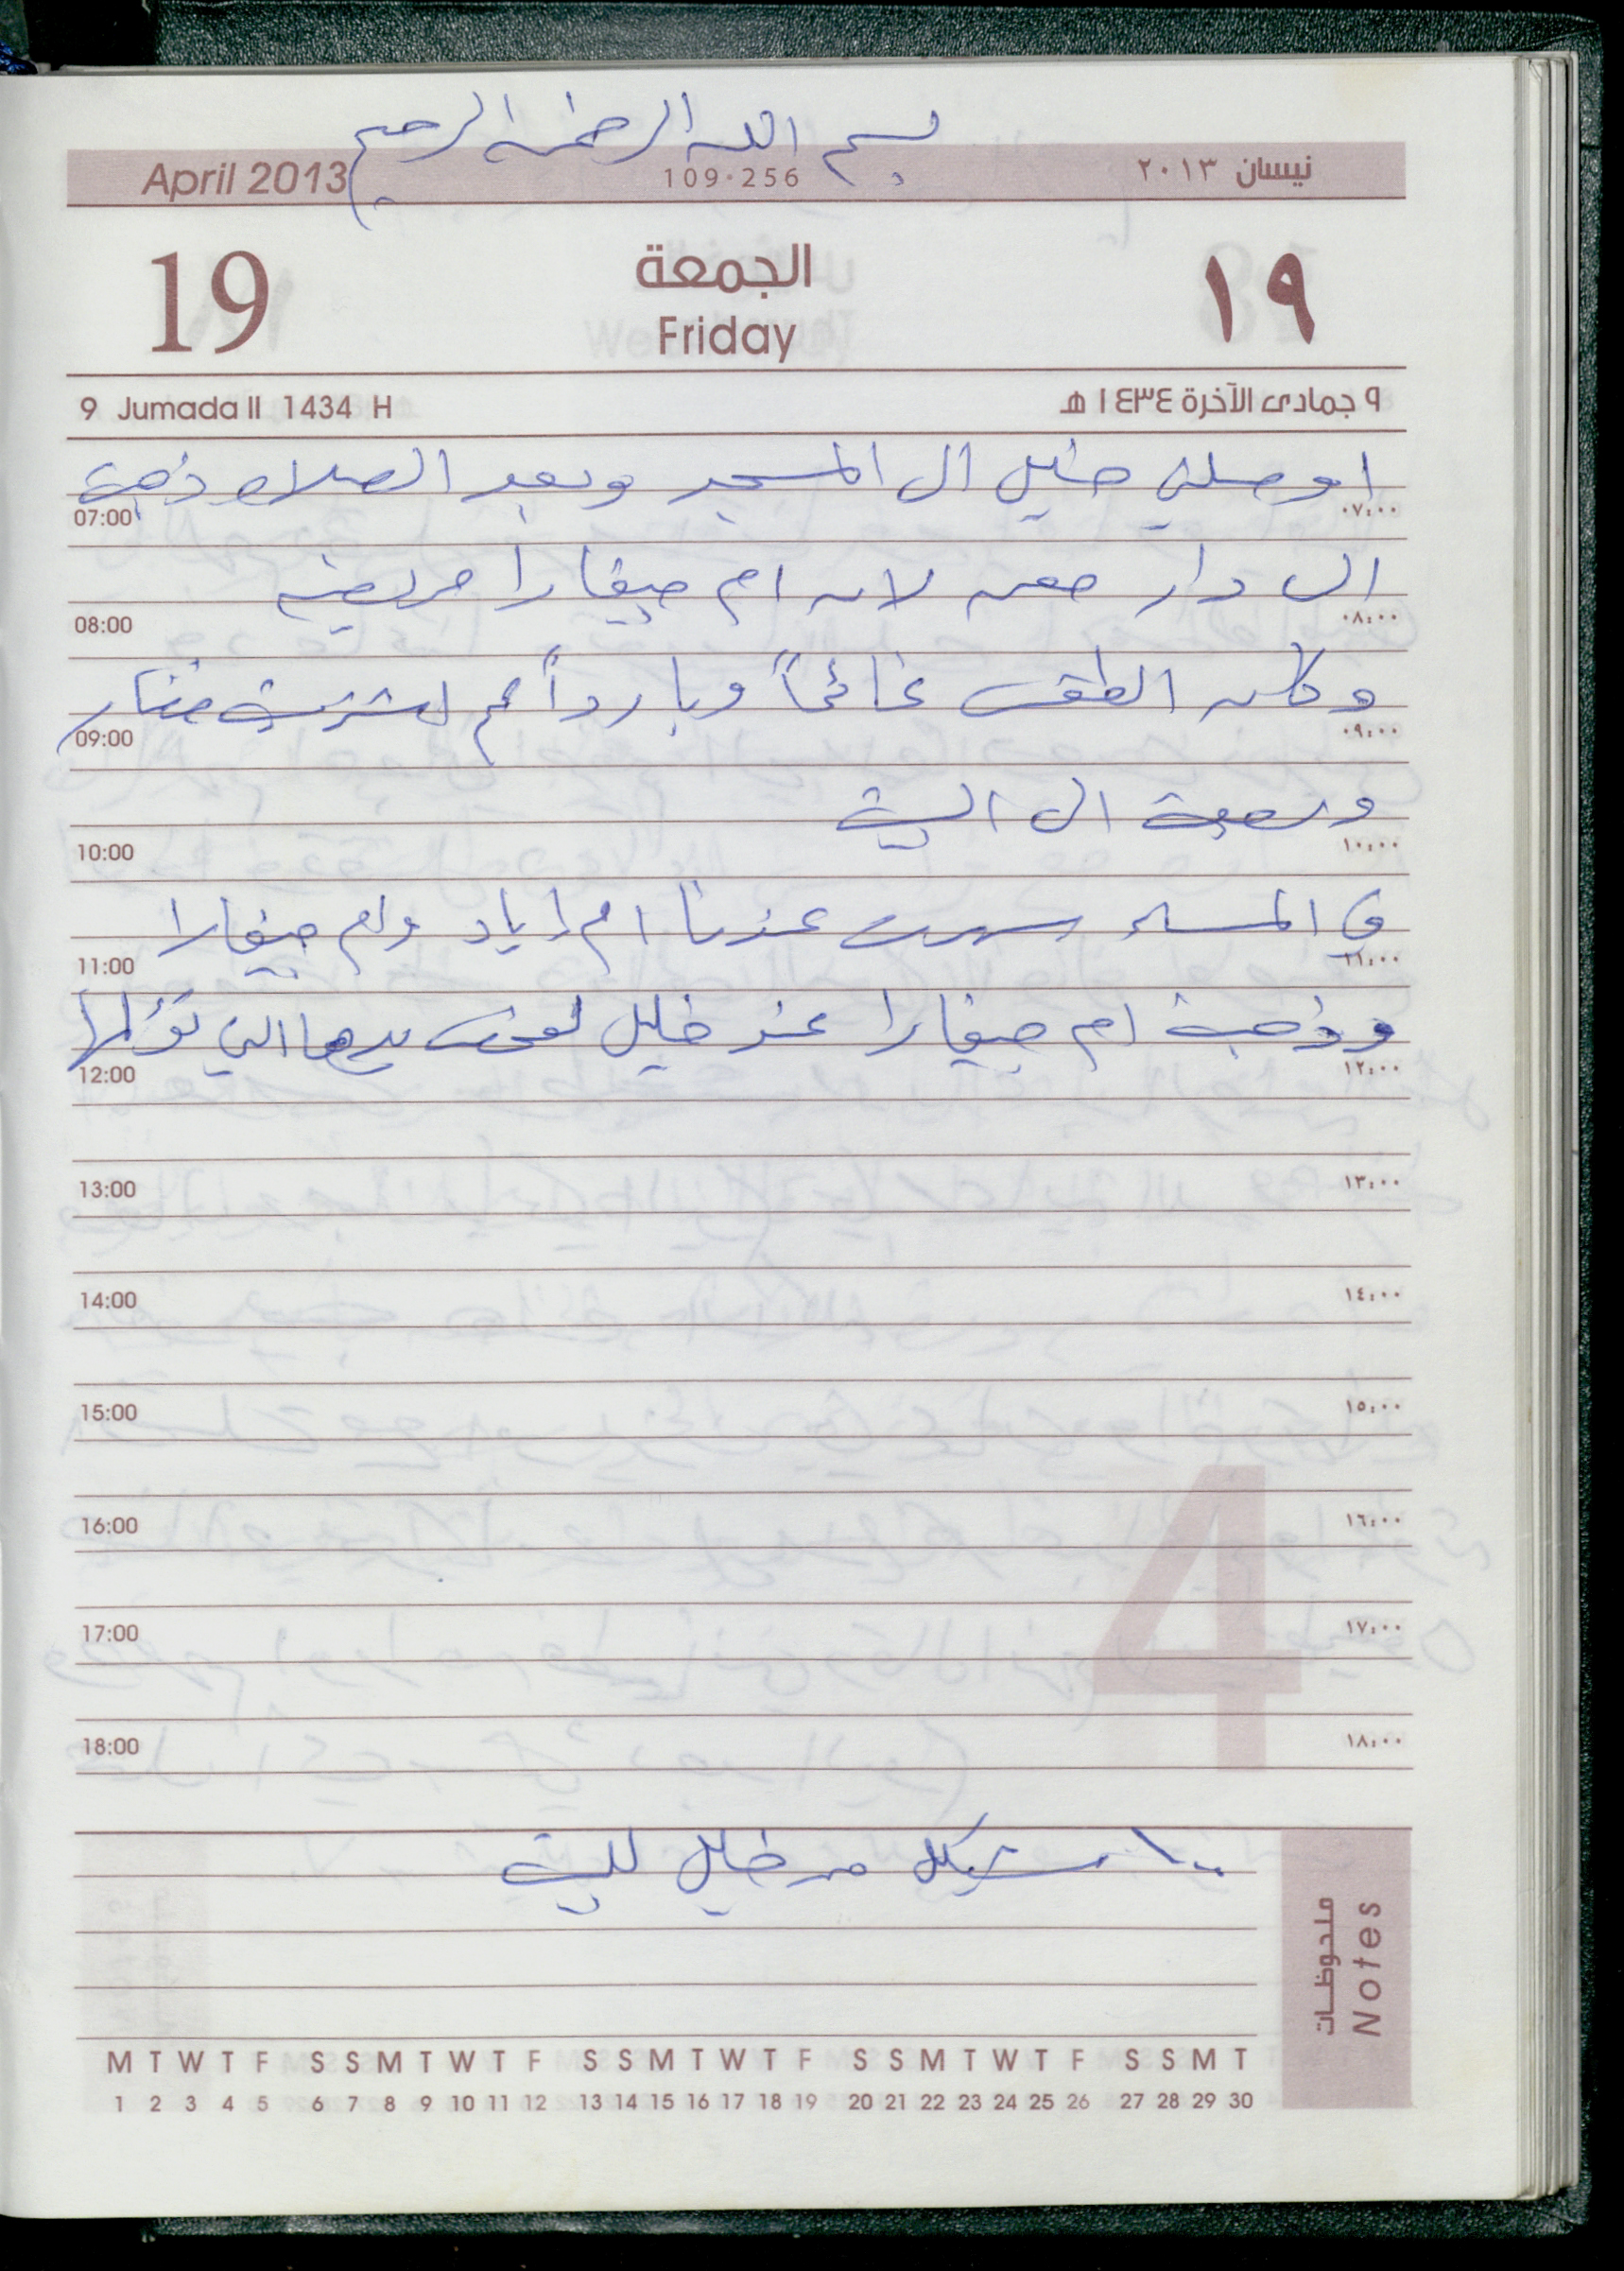 بسم الله الرحمن الرحيم
April 2013 109-256 نيسان ٢٠١٣
19 الجمعة ١٩
Friday
9 Jumada II 1434 H ٩ جمادى الآخرة ١٤٣٤ هـ
اوصلني خليل الى المسجد وبعد الصلاه ذهبت
07:00 ٠٧:٠٠
الى دار معن لان ام جيفارا مريضه
08:00 ٠٨:٠٠
وكان الطقس غائماً وبارداً ثم اشتريت خضار
09:00 ٠٩:٠٠
ورجعت الى البيت
10:00 ١٠:٠٠
في المساء سهرت عندنا ام اياد وام جيفارا
11:00 ١١:٠٠
وذهبت ام جيفارا عند خليل لفحص يدها التي تؤلمها
12:00 ١٢:٠٠
13:00 ١٣:٠٠
14:00 ١٤:٠٠
15:00 ١٥:٠٠
16:00 ١٦:٠٠
17:00 ١٧:٠٠
18:00 ١٨:٠٠
4
١٠٠ شيكل من خليل للبيت
ملحوظات
Notes
M T W T F S S M T W T F S S M T W T F S S M T W T F S S M T
1 2 3 4 5 6 7 8 9 10 11 12 13 14 15 16 17 18 19 20 21 22 23 24 25 26 27 28 29 30